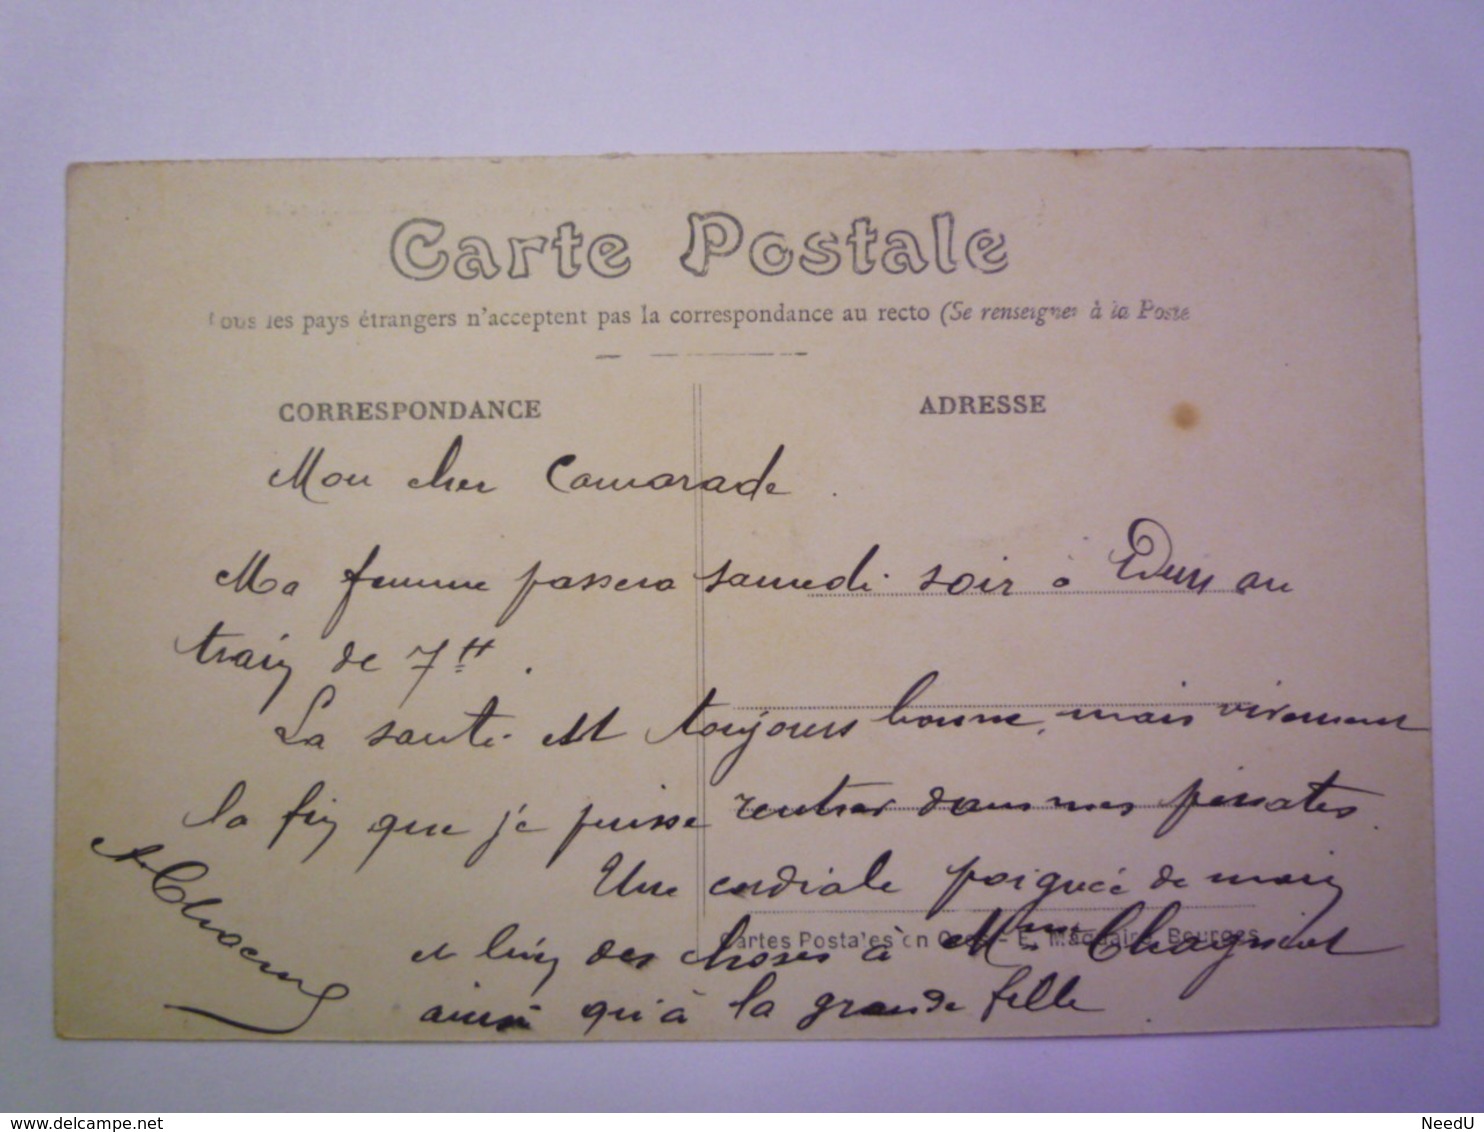 Carte Postale
Tous les pays étrangers n'acceptent pas la correspondance au recto (Se renseigner à la Poste
CORRESPONDANCE
ADRESSE
Mon cher Camarade.
Ma femme passera samedi soir à Dun au
train de 7H.
La santé est toujours bonne, mais vivement
la fin que je puisse rentrer dans mes pénates.
Une cordiale poignée de main
et bien des choses à Mme Chagniot
ainsi qu'à la grande fille.
Cartes Postales en Gros - E. Maquaire, Bourges
www.delcampe.net
NeedU